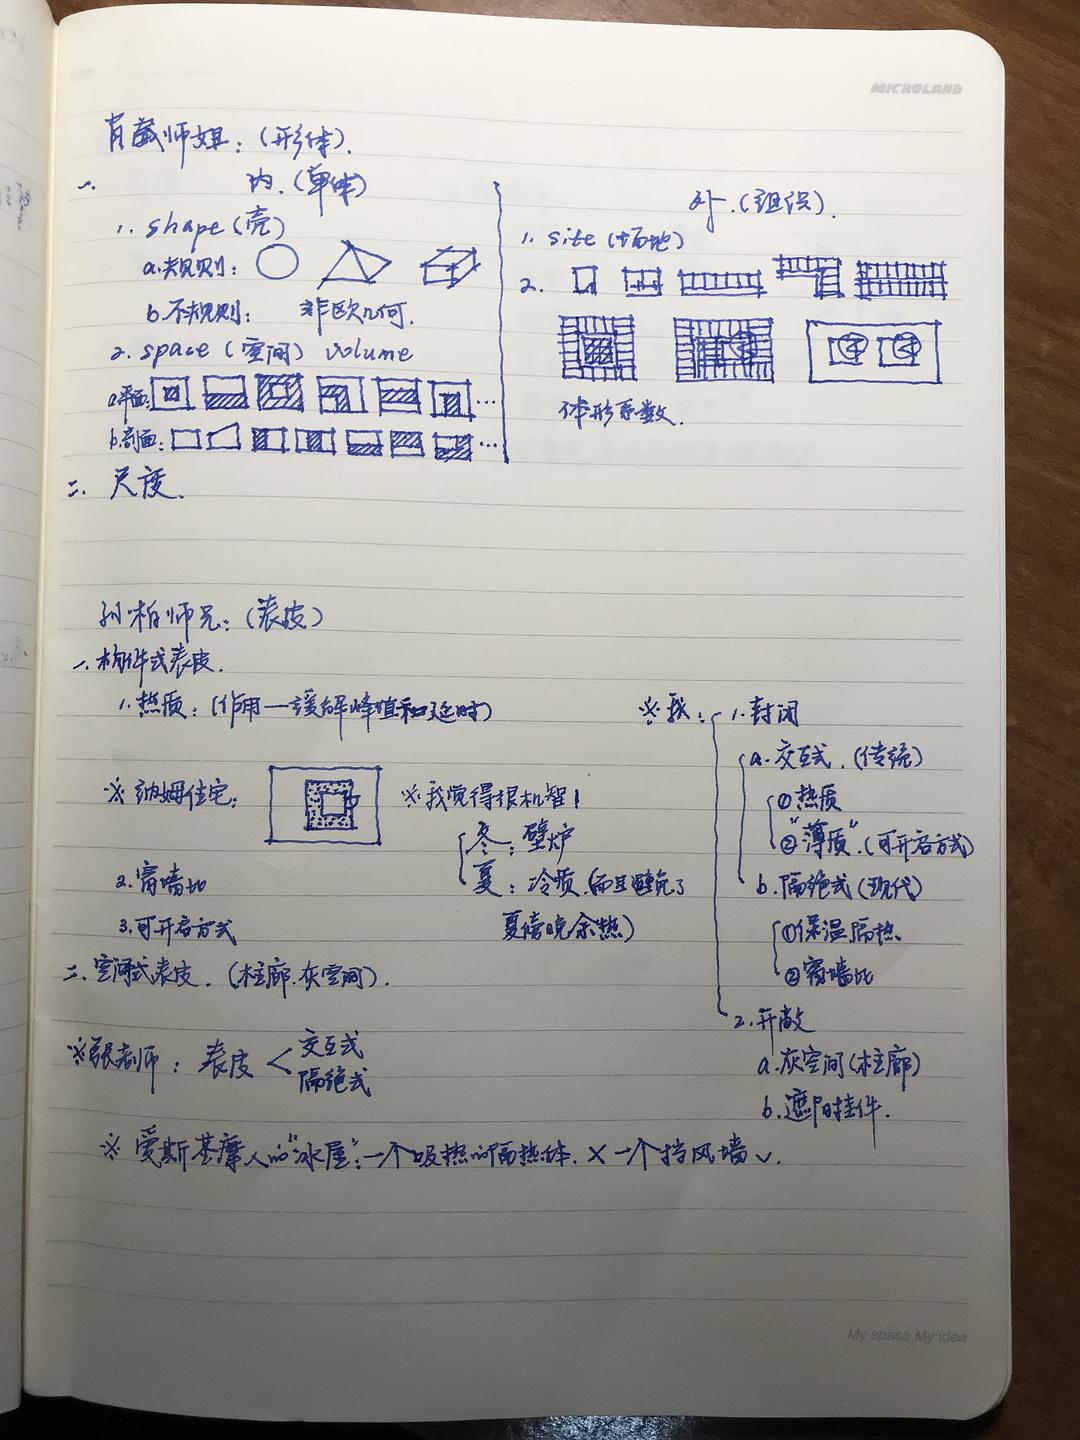 MICROLAND
肖葳师姐：（形体）.
一. 内.（单体）
1. shape（壳）
a.规则：
b.不规则： 非欧几何.
2. space（空间） volume
a平面：
...
b.剖面：
...
外.（组织）.
1. site（场地）
2.
体形系数.
二. 尺度.
孙柏师兄：（表皮）
一. 构件式表皮.
1. 热质：（作用—缓解峰值和延时）
※ 纳姆住宅：
※ 我觉得很机智！
冬：壁炉
夏：冷质.（而且避免了
夏傍晚余热）
2. 窗墙比
3. 可开启方式
二. 空间式表皮.（柱廊.灰空间）.
※张老师：表皮＜交互式
隔绝式
※我：1. 封闭
a. 交互式.（传统）
①热质
②"薄质".（可开启方式）
b. 隔绝式（现代）
①保温隔热
②窗墙比
2. 开敞
a. 灰空间（柱廊）
b. 遮阳挂件.
※ 爱斯基摩人的"冰屋"：一个吸热的隔热体. × 一个挡风墙 ✓.
My space,My idea